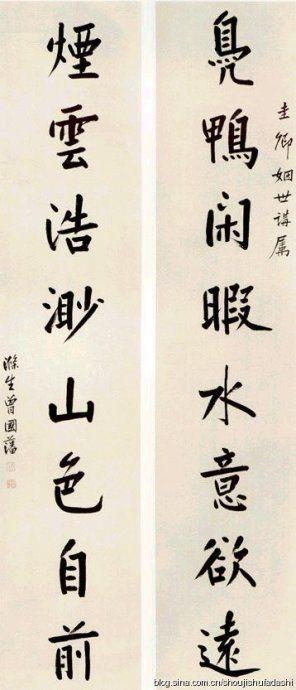 圭卿姻世講属
鳬鴨闲暇水意欲遠
煙雲浩渺山色自前
滌生曾國藩
blog.sina.com.cn/shoujishufadashi